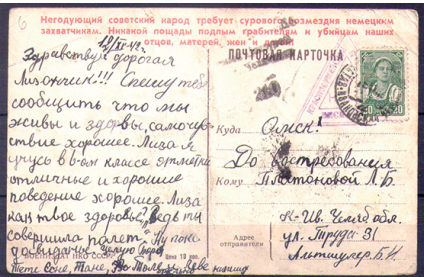 Негодующий советский народ требует сурового возмездия немецким
захватчикам. Никакой пощады подлым грабителям и убийцам наших
отцов, матерей, жен и детей!
6
ПОЧТОВАЯ КАРТОЧКА
Здравствуй дорогая
Лизончик!!! Спешу тебе
сообщить что мы
живы и здоровы, самочув
ствие хорошее. Лиза я
учусь в 6-ом классе отметки
отличные и хорошие
поведение хорошее. Лиза
как твое здоровье? Ведь ты
совершила полет. Ну пока
досвидание целую
Тете Соне, Тане,
Куда Омск!
До востребования
Кому Платоновой Л.Б.
Адрес
отправителя
г. К-Ив. Челяб обл.
ул. Труда 31
Альтшулер Б.И.
20 20
Цена 10 коп.